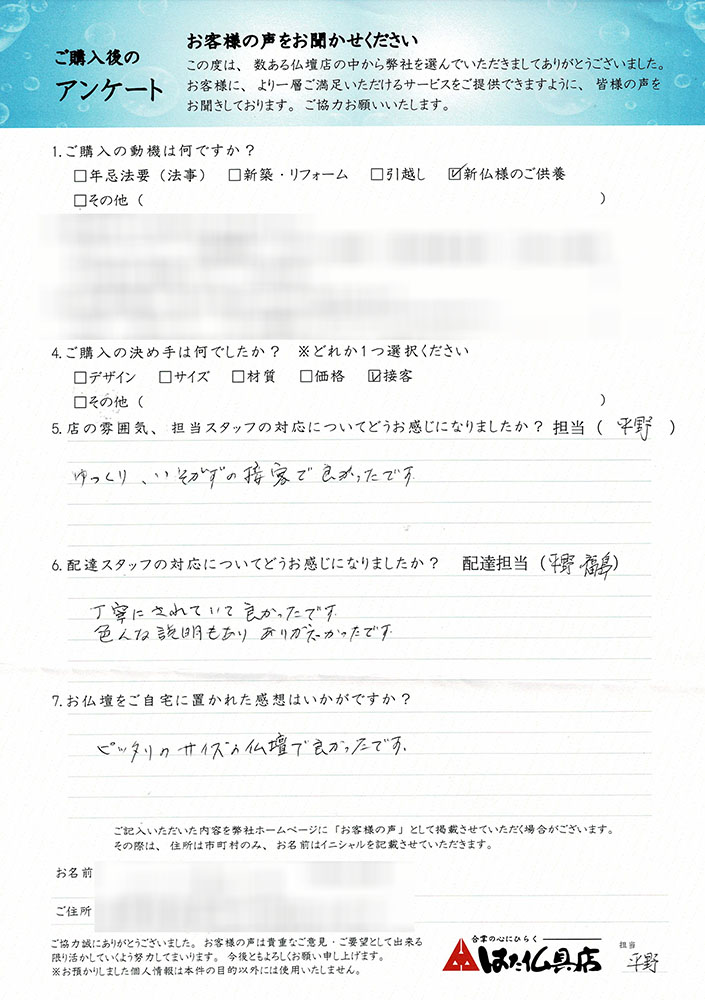 ご購入後の
アンケート
お客様の声をお聞かせください
この度は、数ある仏壇店の中から弊社を選んでいただきましてありがとうございました。
お客様に、より一層ご満足いただけるサービスをご提供できますように、皆様の声を
お聞きしております。ご協力お願いいたします。
1.ご購入の動機は何ですか？
□年忌法要（法事） □新築・リフォーム □引越し ☑新仏様のご供養
□その他（ ）
4.ご購入の決め手は何でしたか？ ※どれか1つ選択ください
□デザイン □サイズ □材質 □価格 ☑接客
□その他（ ）
5.店の雰囲気、担当スタッフの対応についてどうお感じになりましたか？ 担当（ 平野 ）
ゆっくり、いそがずの接客で良かったです
6.配達スタッフの対応についてどうお感じになりましたか？ 配達担当（平野 福島）
丁寧にされていて良かったです
色んな説明もあり ありがたかったです
7.お仏壇をご自宅に置かれた感想はいかがですか？
ピッタリのサイズの仏壇で良かったです。
ご記入いただいた内容を弊社ホームページに「お客様の声」として掲載させていただく場合がございます。
その際は、住所は市町村のみ、お名前はイニシャルを記載させていただきます。
お名前
ご住所
ご協力誠にありがとうございました。お客様の声は貴重なご意見・ご要望として出来る
限り活かしていくよう努力してまいります。今後ともよろしくお願い申し上げます。
※お預かりしました個人情報は本件の目的以外には使用いたしません。
合掌の心にひらく
はた仏具店
担当
平野